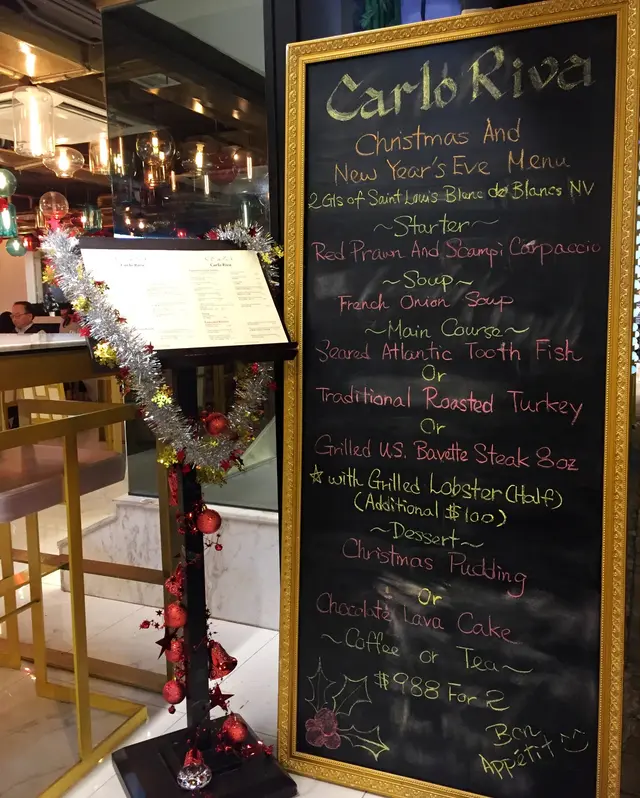 Carlo Riva
Christmas And
New Year's Eve Menu
2 Gls of Saint Louis Blanc de Blancs NV
~Starter~
Red Prawn And Scampi Carpaccio
~Soup~
French Onion Soup
~Main Course~
Seared Atlantic Tooth Fish
Or
Traditional Roasted Turkey
Or
Grilled U.S. Bavette Steak 8oz
☆ with Grilled Lobster (Half)
(Additional $100)
~Dessert~
Christmas Pudding
Or
Chocolate Lava Cake
~Coffee or Tea~
$988 For 2
Bon
Appétit
Carlo Riva
Carlo Riva